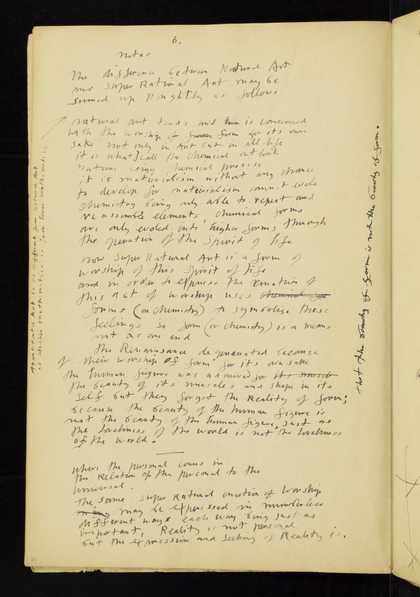 6.
Notes
The difference between Natural Art
and Super Rational Art may be
summed up roughtly as follows
Natural art trads and is concerned
with the worship of form for its own
sake not only in Art but in all life
it is what I call the chemical outlook
nature being chemical process
it is materialism without any chance
to develop for materialism cannot evolve
chemistry being only able to repeat and
re assemble elements, chemical forms
are only evolved into higher forms through
the operation of the Spirit of life
now Super Rational Art is a form of
worship of this Spirit of life
and in order to express the emotion of
this act of worship uses
forms (or chemistry) to symbolize these
feelings so form (or chemistry) is a means
not as an end
the Renaissance degenerated because
of their worship of form for its own sake
the human figure was admired for
the beauty of its muscles and shape in its
self but they forgot the Reality of form;
because the beauty of the human figure is
not the beauty of the human figure, just as
the loveliness of the world is not the loveliness
of the world.
where the personal comes in
the Relation of the personal to the
universal.
The same super Rational emotion of Worship
may be expressed in numberless
different ways each way being just as
important, Reality is not personal
but the expression and seeking of Reality is.
that the beauty of form is not the beauty of form.